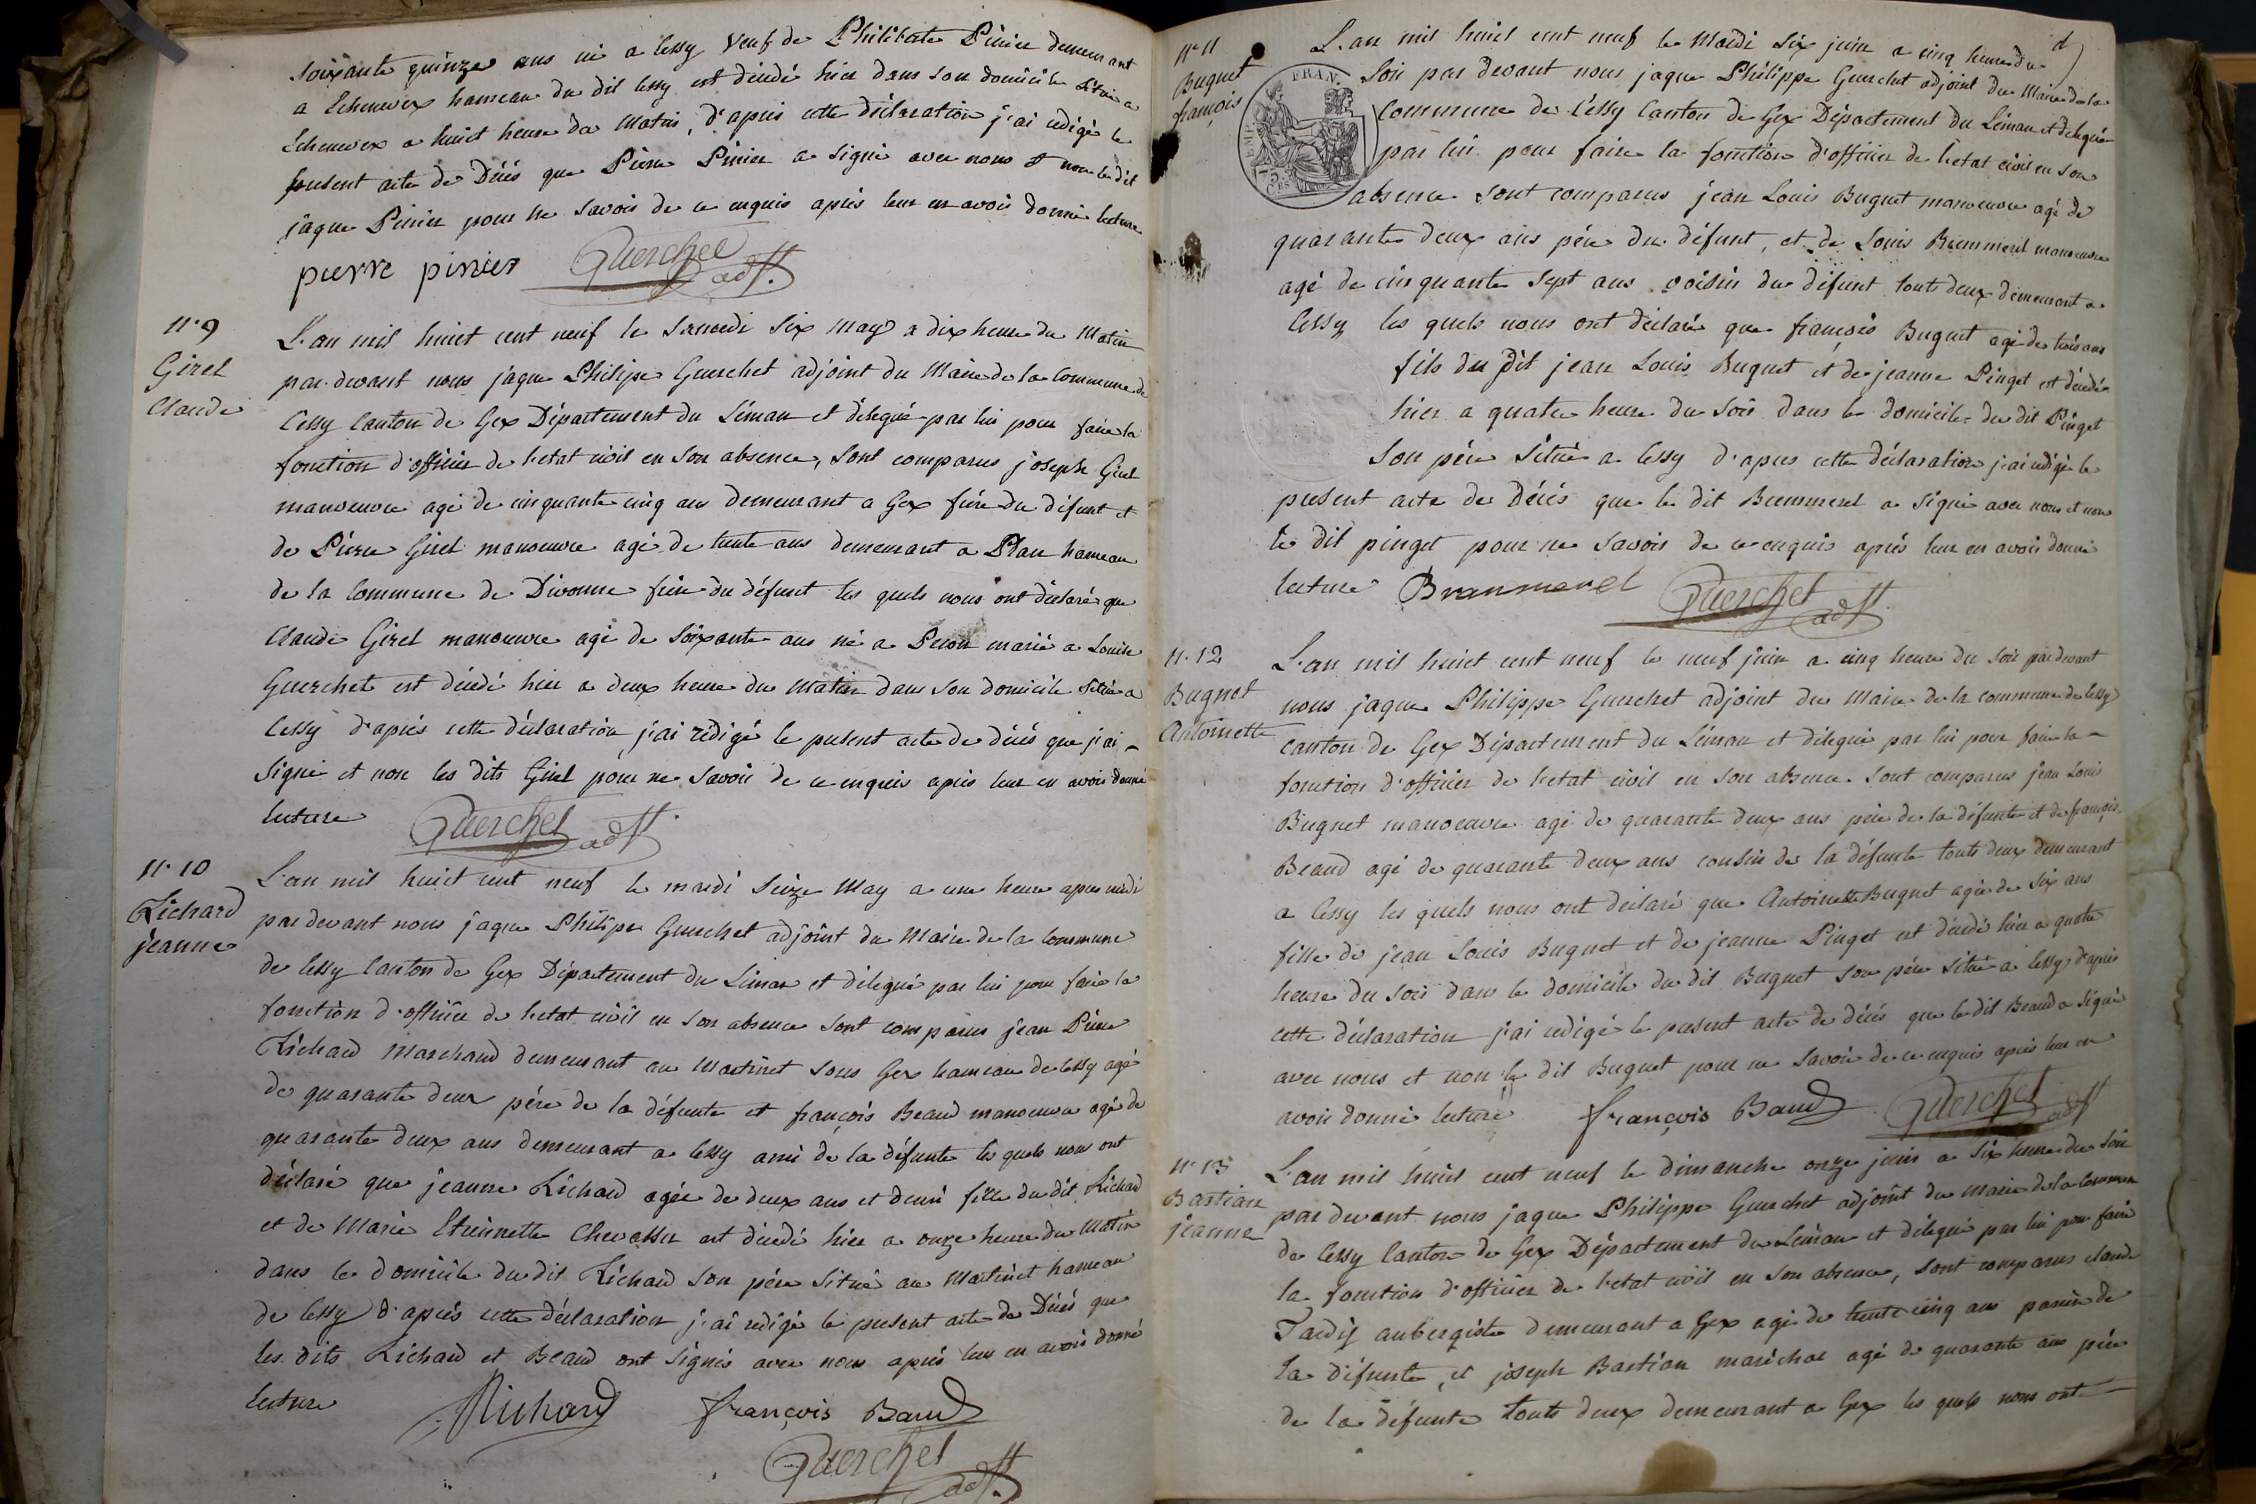 soixante quinze ans né a Cessy veuf de Philiberte Pinier demeurant
a Echenevex hameau du dit Cessy est décédé hier dans son domicile situé a
Echenevex a huict heure du Matin, d'aprés cette déclaration j'ai redigé le
present acte de Décés que Pierre Pinier a signé avec nous et non le dit
jaque Pinier pour ne savoir de ce enquis aprés leur en avoir donné lecture
pierre pinier Guerchet adjt.
N° 9
Girel
Claude
L'an mil huict cent neuf le samedi six may a dix heure du Matin
par devant nous jaque Philipe Guerchet adjoint du Maire de la Commune de
Cessy Canton de Gex Département du Léman et délegué par lui pour faire la
fonction d'officier de l'etat civil en son absence, sont comparus joseph Girel
manoeuvre agé de cinquante cinq ans demeurant a Gex frére du défunt et
de Piérre Girel manoeuvre agé de trente ans demeurant a Plan hameau
de la Commune de Divonne frére du défunt les quels nous ont déclaré que
Claude Girel manoeuvre agé de soixante ans né a Peron marié a Louise
Guerchet est décédé hier a deux heure du Matin dans son domicile situé a
Cessy d'aprés cette déclaration j'ai rédigé le present acte de décés que j'ai
signé et non les dits Girel pour ne savoir de ce enquis aprés leur en avoir donné
lecture Guerchet adjt.
N° 10
Richard
jeanne
L'an mil huict cent neuf le mardi seize May a une heure apres midi
par devant nous jaque Philipe Guerchet adjoint du Maire de la Commune
de Cessy Canton de Gex Département du Léman et délegué par lui pour faire la
fonction d'officier de l'etat civil en son absence sont comparus jean Piérre
Richard Marchand demeurant au Martinet sous Gex hameau de Cessy agé
de quarante deux pére de la défunte et françois Beaud manoeuvre agé de
quarante deux ans demeurant a Cessy ami de la défunte les quels nous ont
déclaré que jeanne Richard agée de deux ans et demi fille du dit Richard
et de Marie Etiennette Chevassu est décédé hier a onze heure du Matin
dans le domicile du dit Richard son pére situé au Martinet hameau
de Cessy d'aprés cette déclaration j'ai redigé le present acte de Décés que
les dits Richard et Beaud ont signés avec nous aprés leur en avoir donné
lecture Richard françois Baud
Guerchet adjt.
N° 11
Buguet
françois
L'an mil huict cent neuf le Mardi six juin a cinq heure du
soir par devant nous jaque Philippe Guerchet adjoint du Maire de la
Commune de Cessy Canton de Gex Département du Léman et délegué
par lui pour faire la fonction d'officier de l'etat civil en son
absence sont comparus jean Louis Buguet manoeuvre agé de
quarante deux ans pére du défunt, et de Louis Brummerel manoeuvre
agé de cinquante sept ans voisin du défunt touts deux demeurant a
Cessy les quels nous ont déclaré que françois Buguet agé de trois ans
fils du dit jean Louis Buguet et de jeanne Pinget est décédé
hier a quatre heure du soir dans le domicile du dit Pinget
son pére situé a Cessy d'apres cette déclaration j'ai rédigé le
present acte de Décés que le dit Brummerel a signé avec nous et non
le dit pinget pour ne savoir de ce enquis aprés leur en avoir donné
lecture Brammerel Guerchet adjt.
N° 12
Buguet
Antoinette
L'an mil huict cent neuf le neuf juin a cinq heure du soir par devant
nous jaque Philippe Guerchet adjoint du Maire de la commune de Cessy
canton de Gex Département du Léman et délegué par lui pour faire la
fonction d'officier de l'etat civil en son absence sont comparus jean Louis
Buguet manoeuvre agé de quarante deux ans pére de la défunte et de françois
Beaud agé de quarante deux ans cousin de la défunte touts deux demeurant
a Cessy les quels nous ont déclaré que Antoinette Buguet agée de six ans
fille de jean Louis Buguet et de jeanne Pinget est décédé hier a quatre
heure du soir dans le domicile du dit Buguet son pére situé a Cessy d'aprés
cette déclaration j'ai redigé le present acte de décés que le dit Beaud a signé
avec nous et non le dit Buguet pour ne savoir de ce enquis aprés leur en
avoir donné lecture françois Baud Guerchet adjt
N° 13
Bastian
jeanne
L'an mil huict cent neuf le dimanche onze juin a six heure du soir
par devant nous jaque Philippe Guerchet adjoint du Maire de la Commune
de Cessy Canton de Gex Département du Léman et délegué par lui pour faire
la fonction d'officier de l'etat civil en son absence, sont comparus claude
Tardy aubergiste demeurant a Gex agé de trente cinq ans parrin de
la défunte, et joseph Bastian maréchal agé de quarante ans pére
de la défunte touts deux demeurant a Gex les quels nous ont